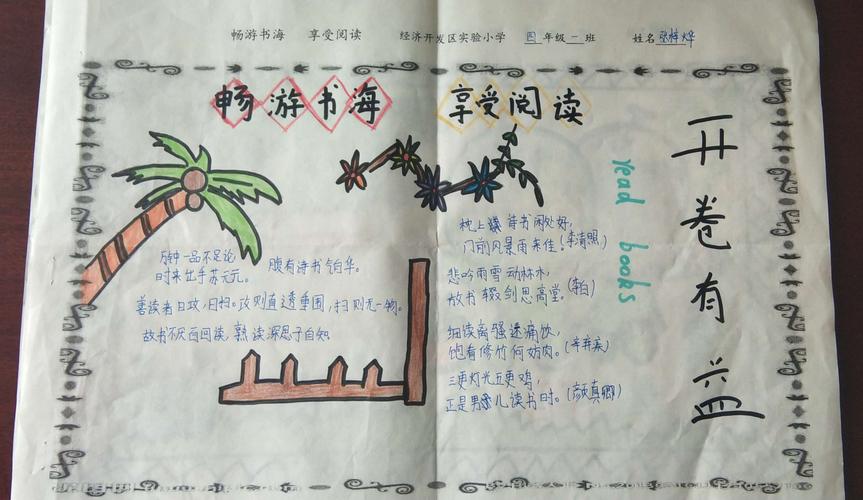 畅游书海 享受阅读 经济开发区实验小学 四 年级 一 班 姓名 张梓烨
畅游书海 享受阅读
开卷有益
read books
万钟一品不足论,
时来出手苏元元。
腹有诗书气自华。
善读者日攻,日扫。攻则直透重围,扫则无一物。
故书不厌百回读,熟读深思子自知
枕上诗书闲处好,
门前风景雨来佳。(李清照)
悲吟雨雪动林木,
放书辍剑思高堂。(李白)
细读离骚还痛饮,
饱看修竹何妨肉。(辛弃疾)
三更灯光五更鸡,
正是男儿读书时。(颜真卿)